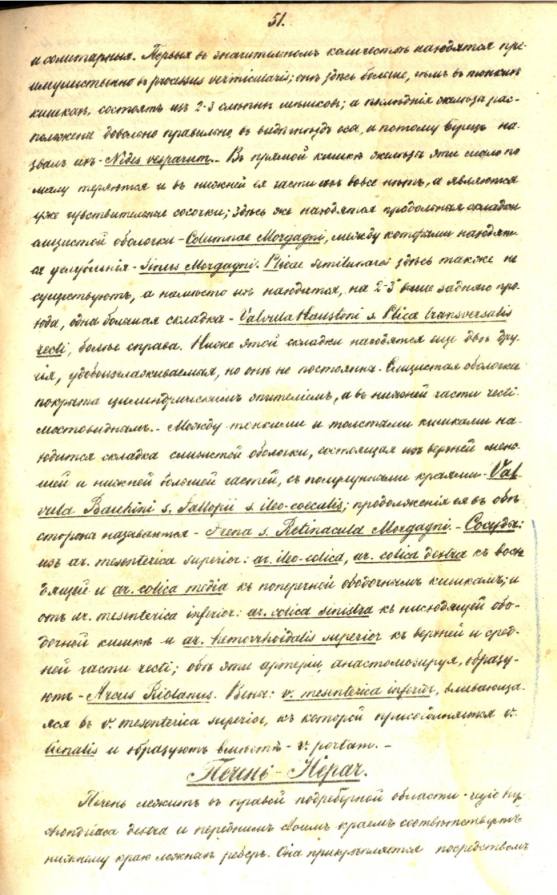 51.
и солитарныя. Первыя въ значительномъ количествѣ находятся пре-
имущественно въ processus vermicularis; онѣ здѣсь больше, чѣмъ въ тонкихъ
кишкахъ, состоятъ изъ 2-3 слѣпыхъ мѣшковъ; а послѣднія железы рас-
положены довольно правильно, въ видѣ гнѣздъ осъ, и потому на-
звалъ ихъ - Nides vesparum. - Въ прямой кишкѣ железы эти мало по
малу теряются и въ нижней ея части ихъ вовсе нѣтъ, а являются
уже чувствительные сосочки; здѣсь же находятся продольныя складки
слизистой оболочки - Columnae Morgagni, между которыми находят-
ся углубленія - Sinus Morgagni. Plicae semilunares здѣсь также не
существуютъ, а вмѣсто ихъ находится, на 2-3" выше задняго про-
хода, одна большая складка - Valvula Haustoni s. Plica transversalis
recti, болѣе справа. Ниже этой складки находятся еще двѣ дру-
гія, удобоизглаживаемыя, но онѣ не постоянны. Слизистая оболочка
покрыта цилиндрическимъ эпителіемъ, а въ нижней части recti -
мостовиднымъ. - Между тонкими и толстыми кишками на-
ходится складка слизистой оболочки, состоящая изъ верхней мень-
шей и нижней большей частей, съ полулунными краями - Val-
vula Bauchini s. Fallopii s. ileo-coecalis; продолженія ея въ обѣ
стороны называются - Frena s. Retinacula Morgagni. - Сосуды:
изъ ar. mesenterica superior: ar. ileo-colica, ar. colica dextra къ восхо-
дящей и ar. colica media къ поперечной ободочнымъ кишкамъ; и
отъ ar. mesenterica inferior: ar. colica sinistra къ нисходящей обо-
дочной кишкѣ и ar. hemorrhoidalis superior къ верхней и сред-
ней части recti; обѣ эти артеріи, анастомозируя, образу-
ютъ - Arcus Riolanus. Вена: v. mesenterica inferior, вливающа-
яся въ v. mesenterica superior, къ которой присоединяется v.
lienalis и образуютъ вмѣстѣ - v. portam. -
Печень - Hepar.
Печень лежитъ въ правой подреберной области - regio hy-
pochondriaca dextra и переднимъ своимъ краемъ соотвѣтствуетъ
нижнему краю ложныхъ реберъ. Она прикрѣпляется посредствомъ